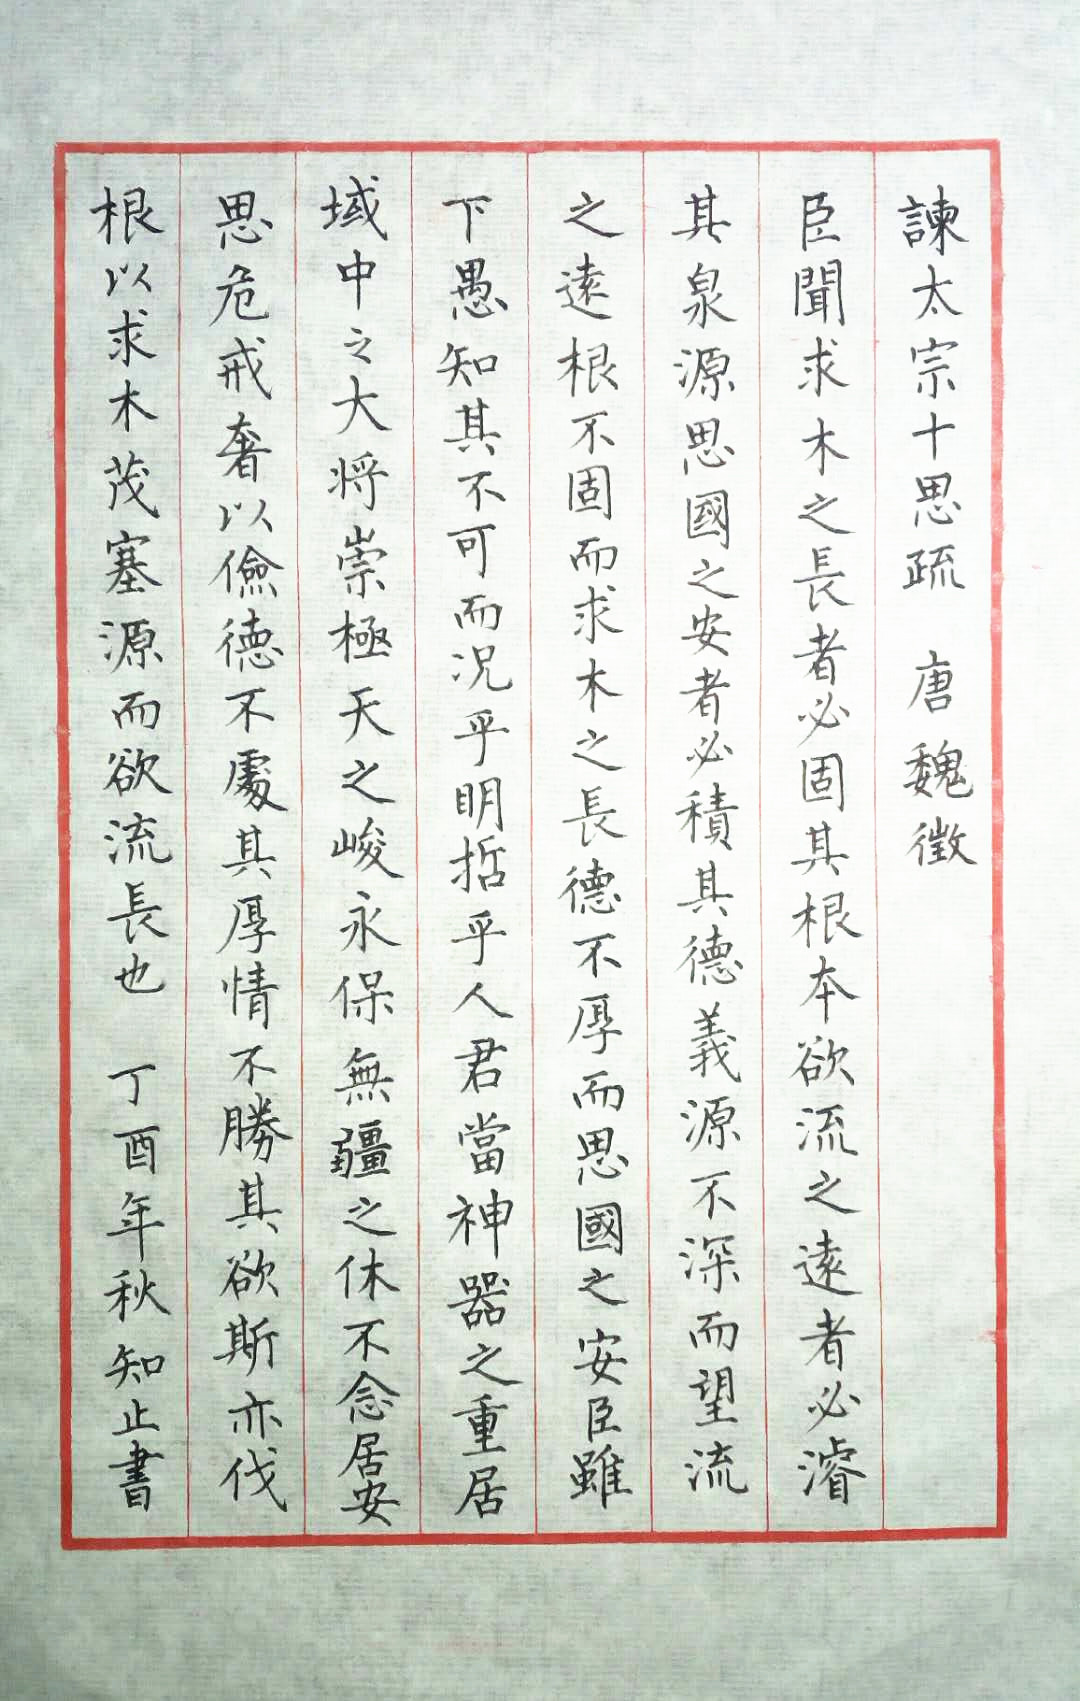 諫太宗十思疏 唐魏徵
臣聞求木之長者必固其根本欲流之遠者必濬
其泉源思國之安者必積其德義源不深而望流
之遠根不固而求木之長德不厚而思國之安臣雖
下愚知其不可而況乎明哲乎人君當神器之重居
域中之大將崇極天之峻永保無疆之休不念居安
思危戒奢以儉德不處其厚情不勝其欲斯亦伐
根以求木茂塞源而欲流長也 丁酉年秋知止書